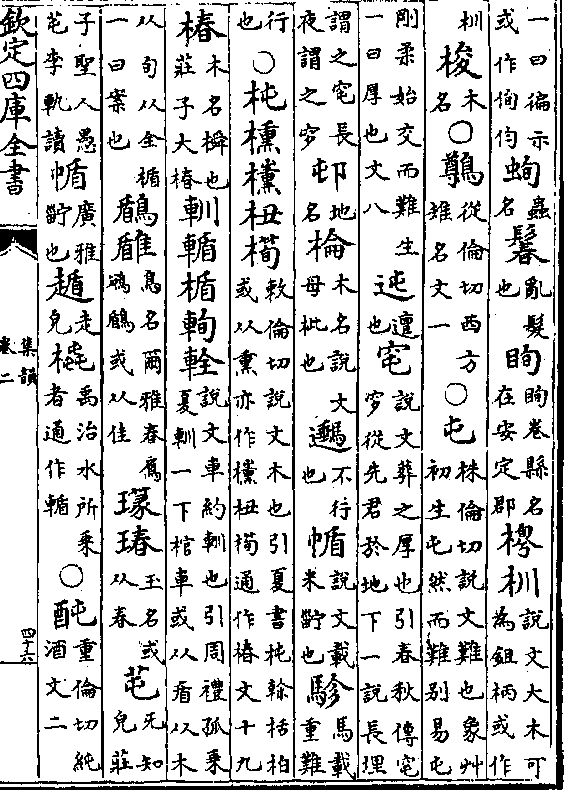 一曰徧示或作侚㽦䖲蟲名鬊亂髮也眴眴卷縣名在安定郡㮴杊說文大木可為鉏柄或作
杊梭木名○鷷從倫切西方雉名文一○屯株倫切說文難也象艸初生屯然而難別易屯
剛柔始交而難生一曰厚也文八迍邅也窀說文葬之厚也引春秋傳窀穸從先君於地下一說長埋
謂之窀長夜謂之穸邨地名棆木名說文母杶也不行也㡒說文載米䉛也駗馬載重難
行也○杶櫄杻橁敕倫切說文木也引夏書杶榦栝柏或从熏亦作杻橁通作椿文十九
椿木名橓也莊子大椿軘輴楯軥輇說文車約軘也引周禮孤乘夏軘一下棺車或从盾从木
从旬从全楯一曰案也鶞鳥名爾雅春鳸鳻鶞或从隹瑃玉名或从春芚无知皃莊
子聖人愚芚李軌讀㡒廣雅䉛也走皃禹治水所乘者通作輴○重倫切純酒文二
欽定四庫全書
集韻
卷二
四十六